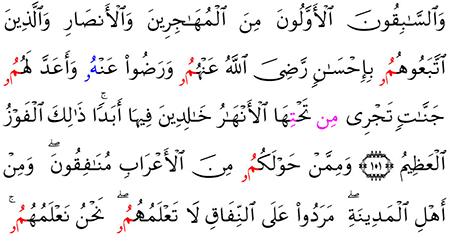 وَالسَّٰبِقُونَ الْأَوَّلُونَ مِنَ الْمُهَٰجِرِينَ وَالْأَنصَارِ وَالَّذِينَ
اتَّبَعُوهُمُۥ بِإِحْسَٰنٍ رَّضِيَ اللَّهُ عَنْهُمُۥ وَرَضُواْ عَنْهُۥ وَأَعَدَّ لَهُمُۥ
جَنَّٰتٍ تَجْرِى مِن تَحْتِهَا الْأَنْهَٰرُ خَٰلِدِينَ فِيهَا أَبَدًاۚ ذَٰلِكَ الْفَوْزُ
الْعَظِيمُ ۝١٠١ وَمِمَّنْ حَوْلَكُمُۥ مِنَ الْأَعْرَابِ مُنَٰفِقُونَۖ وَمِنْ
أَهْلِ الْمَدِينَةِۖ مَرَدُواْ عَلَى النِّفَاقِ لَا تَعْلَمُهُمُۥۖ نَحْنُ نَعْلَمُهُمُۥۚ